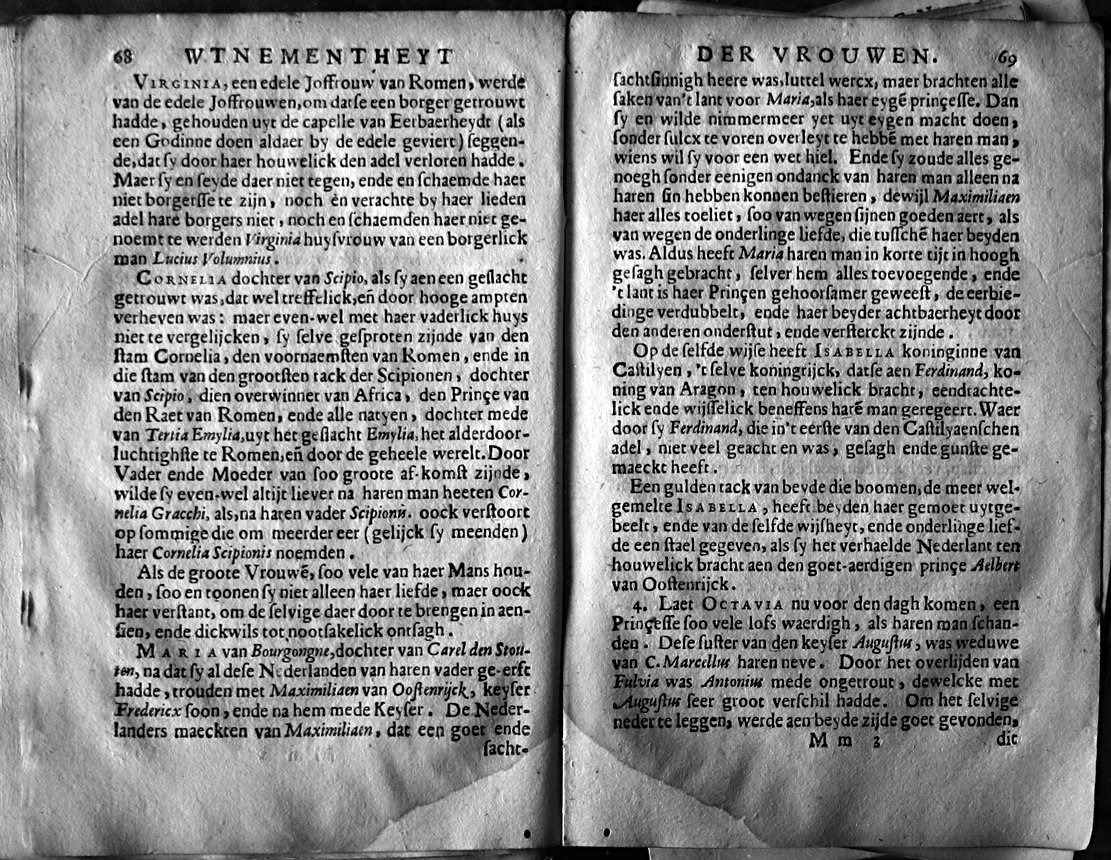 68 WTNEMENTHEYT
VIRGINIA, een edele Joffrouw van Romen, werde
van de edele Joffrouwen, om datſe een borger getrouwt
hadde, gehouden uyt de capelle van Eerbaerheydt (als
een Godinne doen aldaer by de edele geviert) ſeggen-
de, dat ſy door haer houwelick den adel verloren hadde.
Maer ſy en ſeyde daer niet tegen, ende en ſchaemde haer
niet borgerſſe te zijn, noch en verachte by haer lieden
adel hare borgers niet, noch en ſchaemden haer niet ge-
noemt te werden Virginia huyſvrouw van een borgerlick
man Lucius Volumnius.
CORNELIA dochter van Scipio, als ſy aen een geſlacht
getrouwt was, dat wel treffelick, eñ door hooge ampten
verheven was: maer even-wel met haer vaderlick huys
niet te vergelijcken, ſy ſelve geſproten zijnde van den
ſtam Cornelia, den voornaemſten van Romen, ende in
die ſtam van den grootſten tack der Scipionen, dochter
van Scipio, dien overwinner van Africa, den Prinçe van
den Raet van Romen, ende alle natyen, dochter mede
van Tertia Emylia, uyt het geſlacht Emylia, het alderdoor-
luchtighſte te Romen, eñ door de geheele werelt. Door
Vader ende Moeder van ſoo groote af-komſt zijnde,
wilde ſy even-wel altijt liever na haren man heeten Cor-
nelia Gracchi, als, na haren vader Scipionis. oock verſtoort
op ſommige die om meerder eer (gelijck ſy meenden)
haer Cornelia Scipionis noemden.
Als de groote Vrouwē, ſoo vele van haer Mans hou-
den, ſoo en toonen ſy niet alleen haer liefde, maer oock
haer verſtant, om de ſelvige daer door te brengen in aen-
ſien, ende dickwils tot nootſakelick ontſagh.
MARIA van Bourgongne, dochter van Carel den Stou-
ten, na dat ſy al deſe Nederlanden van haren vader ge-erft
hadde, trouden met Maximiliaen van Ooſtenrijck, keyſer
Fredericx ſoon, ende na hem mede Keyſer. De Neder-
landers maeckten van Maximiliaen, dat een goet ende
ſacht-
DER VROUWEN. 69
ſachtſinnigh heere was, luttel wercx, maer brachten alle
ſaken van't lant voor Maria, als haer eygē prinçeſſe. Dan
ſy en wilde nimmermeer yet uyt eygen macht doen,
ſonder ſulcx te voren overleyt te hebbē met haren man,
wiens wil ſy voor een wet hiel. Ende ſy zoude alles ge-
noegh ſonder eenigen ondanck van haren man alleen na
haren ſin hebben konnen beſtieren, dewijl Maximiliaen
haer alles toeliet, ſoo van wegen ſijnen goeden aert, als
van wegen de onderlinge liefde, die tuſſchē haer beyden
was. Aldus heeft Maria haren man in korte tijt in hoogh
geſagh gebracht, ſelver hem alles toevoegende, ende
't lant is haer Prinçen gehoorſamer geweeſt, de eerbie-
dinge verdubbelt, ende haer beyder achtbaerheyt door
den anderen onderſtut, ende verſterckt zijnde.
Op de ſelfde wijſe heeft ISABELLA koninginne van
Caſtilyen, 't ſelve koningrijck, datſe aen Ferdinand, ko-
ning van Aragon, ten houwelick bracht, eendrachte-
lick ende wijſſelick beneffens harē man geregeert. Waer
door ſy Ferdinand, die in't eerſte van den Caſtilyaenſchen
adel, niet veel geacht en was, geſagh ende gunſte ge-
maeckt heeft.
Een gulden tack van beyde die boomen, de meer wel-
gemelte ISABELLA, heeft beyden haer gemoet uytge-
beelt, ende van de ſelfde wijſheyt, ende onderlinge lief-
de een ſtael gegeven, als ſy het verhaelde Nederlant ten
houwelick bracht aen den goet-aerdigen prinçe Aelbert
van Ooſtenrijck.
4. Laet OCTAVIA nu voor den dagh komen, een
Prinçeſſe ſoo vele lofs waerdigh, als haren man ſchan-
den. Deſe ſuſter van den keyſer Auguſtus, was weduwe
van C. Marcellus haren neve. Door het overlijden van
Fulvia was Antonius mede ongetrout, dewelcke met
Auguſtus ſeer groot verſchil hadde. Om het ſelvige
neder te leggen, werde aen beyde zijde goet gevonden,
M m 3 dit